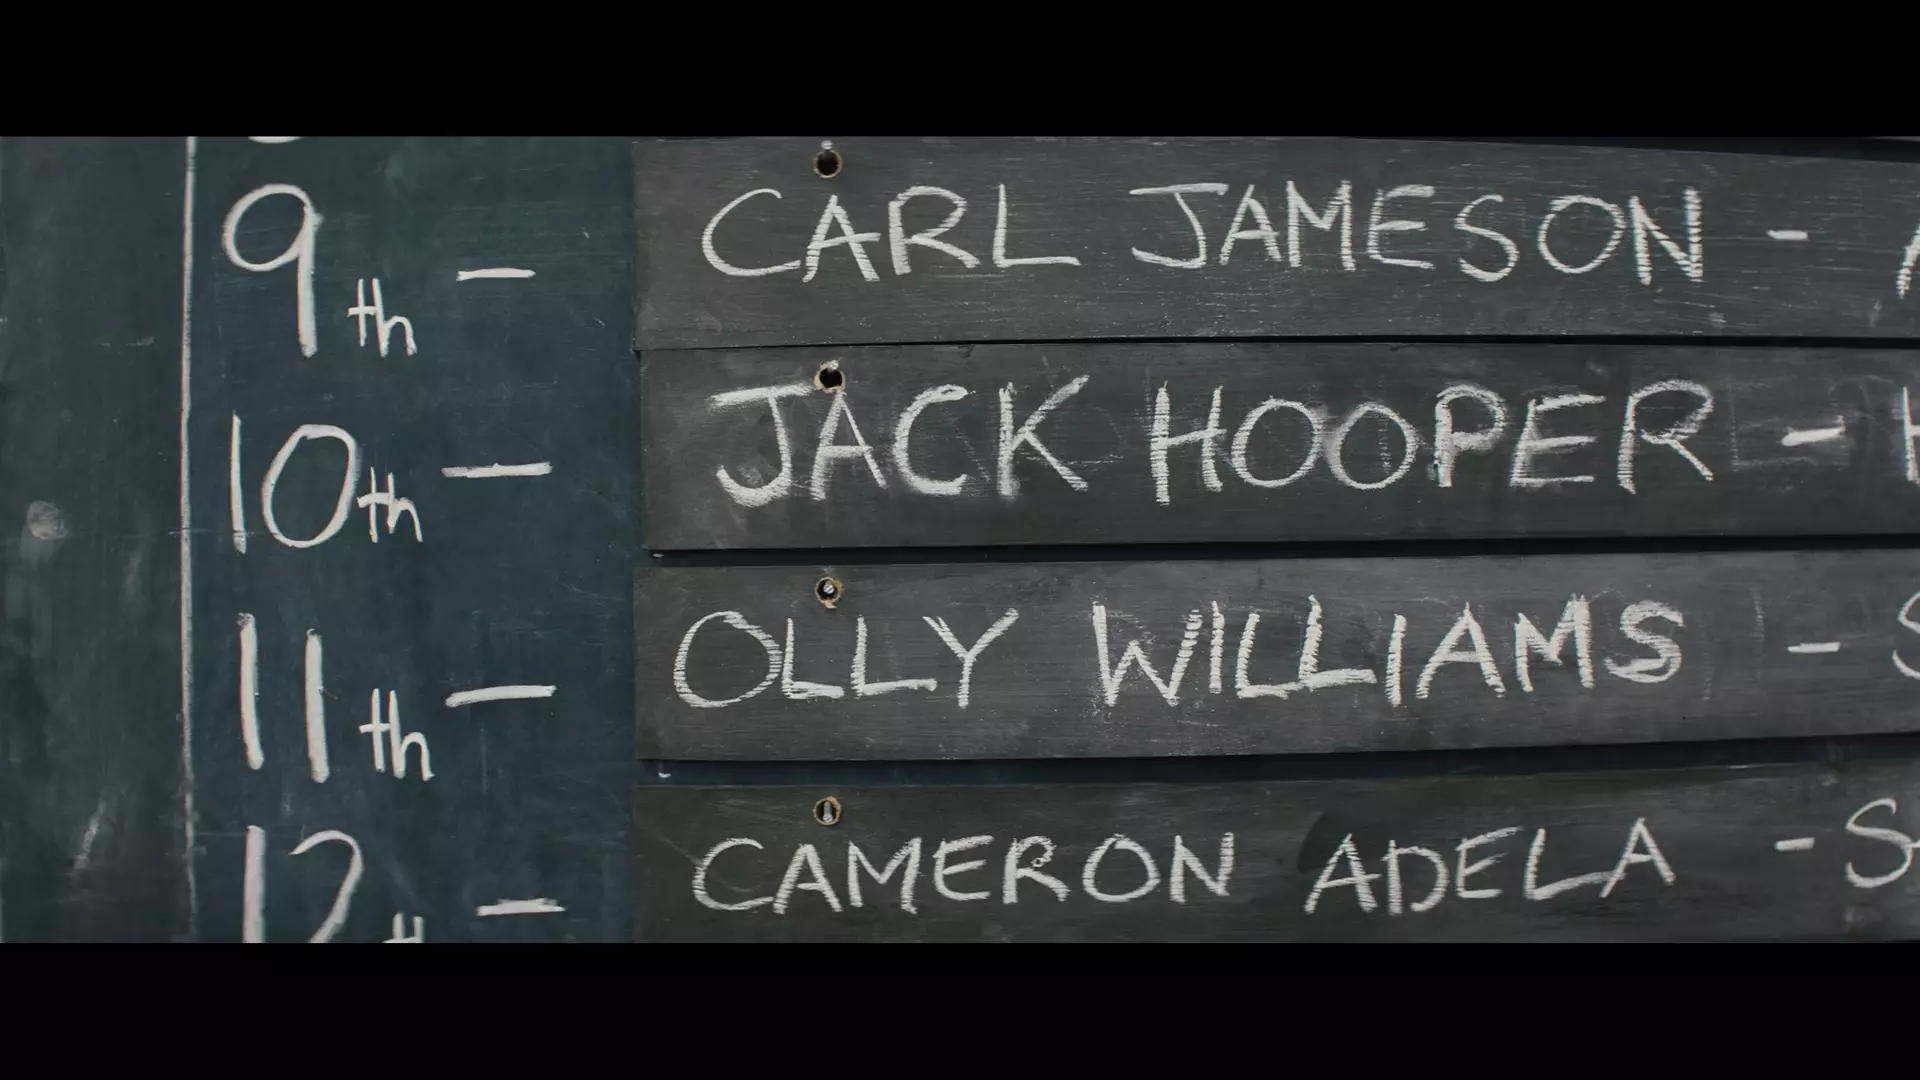 9th - CARL JAMESON -
10th - JACK HOOPER - H
11th - OLLY WILLIAMS - S
12th - CAMERON ADELA - S